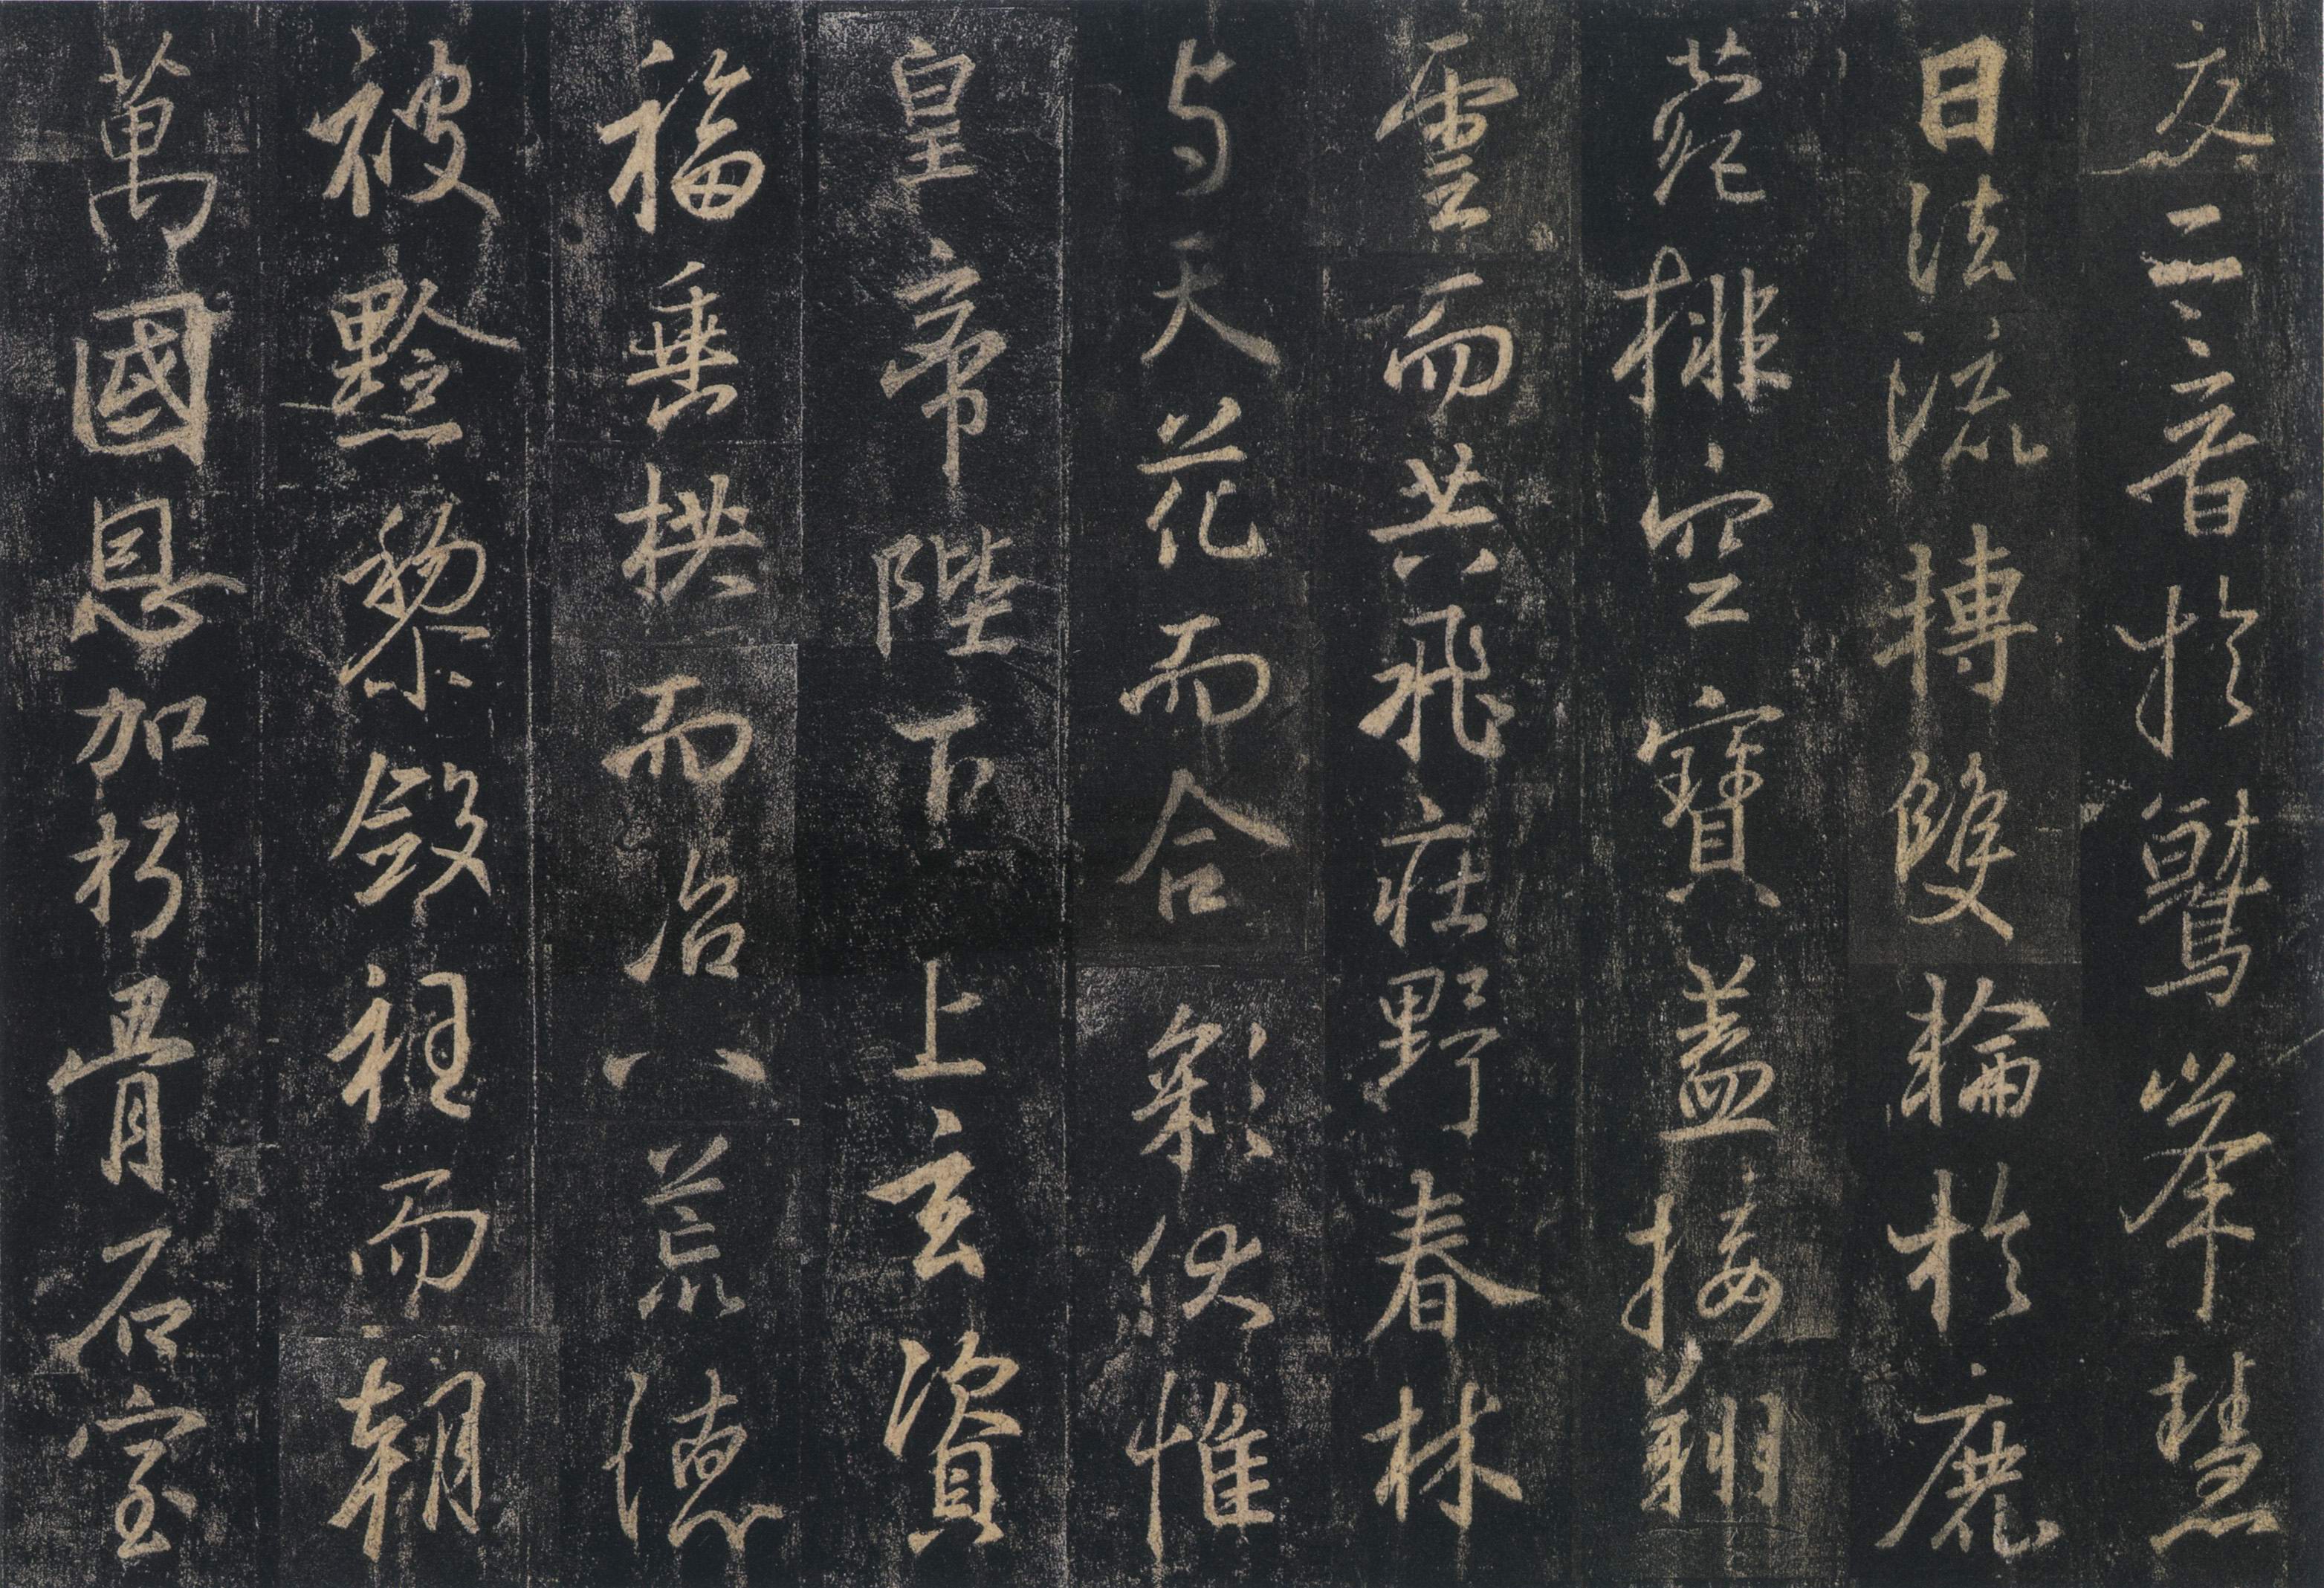 夜二音於鷲峯慧
日法流轉雙輪於鹿
菀排空寶蓋接翔
雲而共飛莊野春林
与天花而合彩伏惟
皇帝陛下上玄資
福垂拱而治八荒德
被黔黎斂衽而朝
萬國恩加朽骨石室